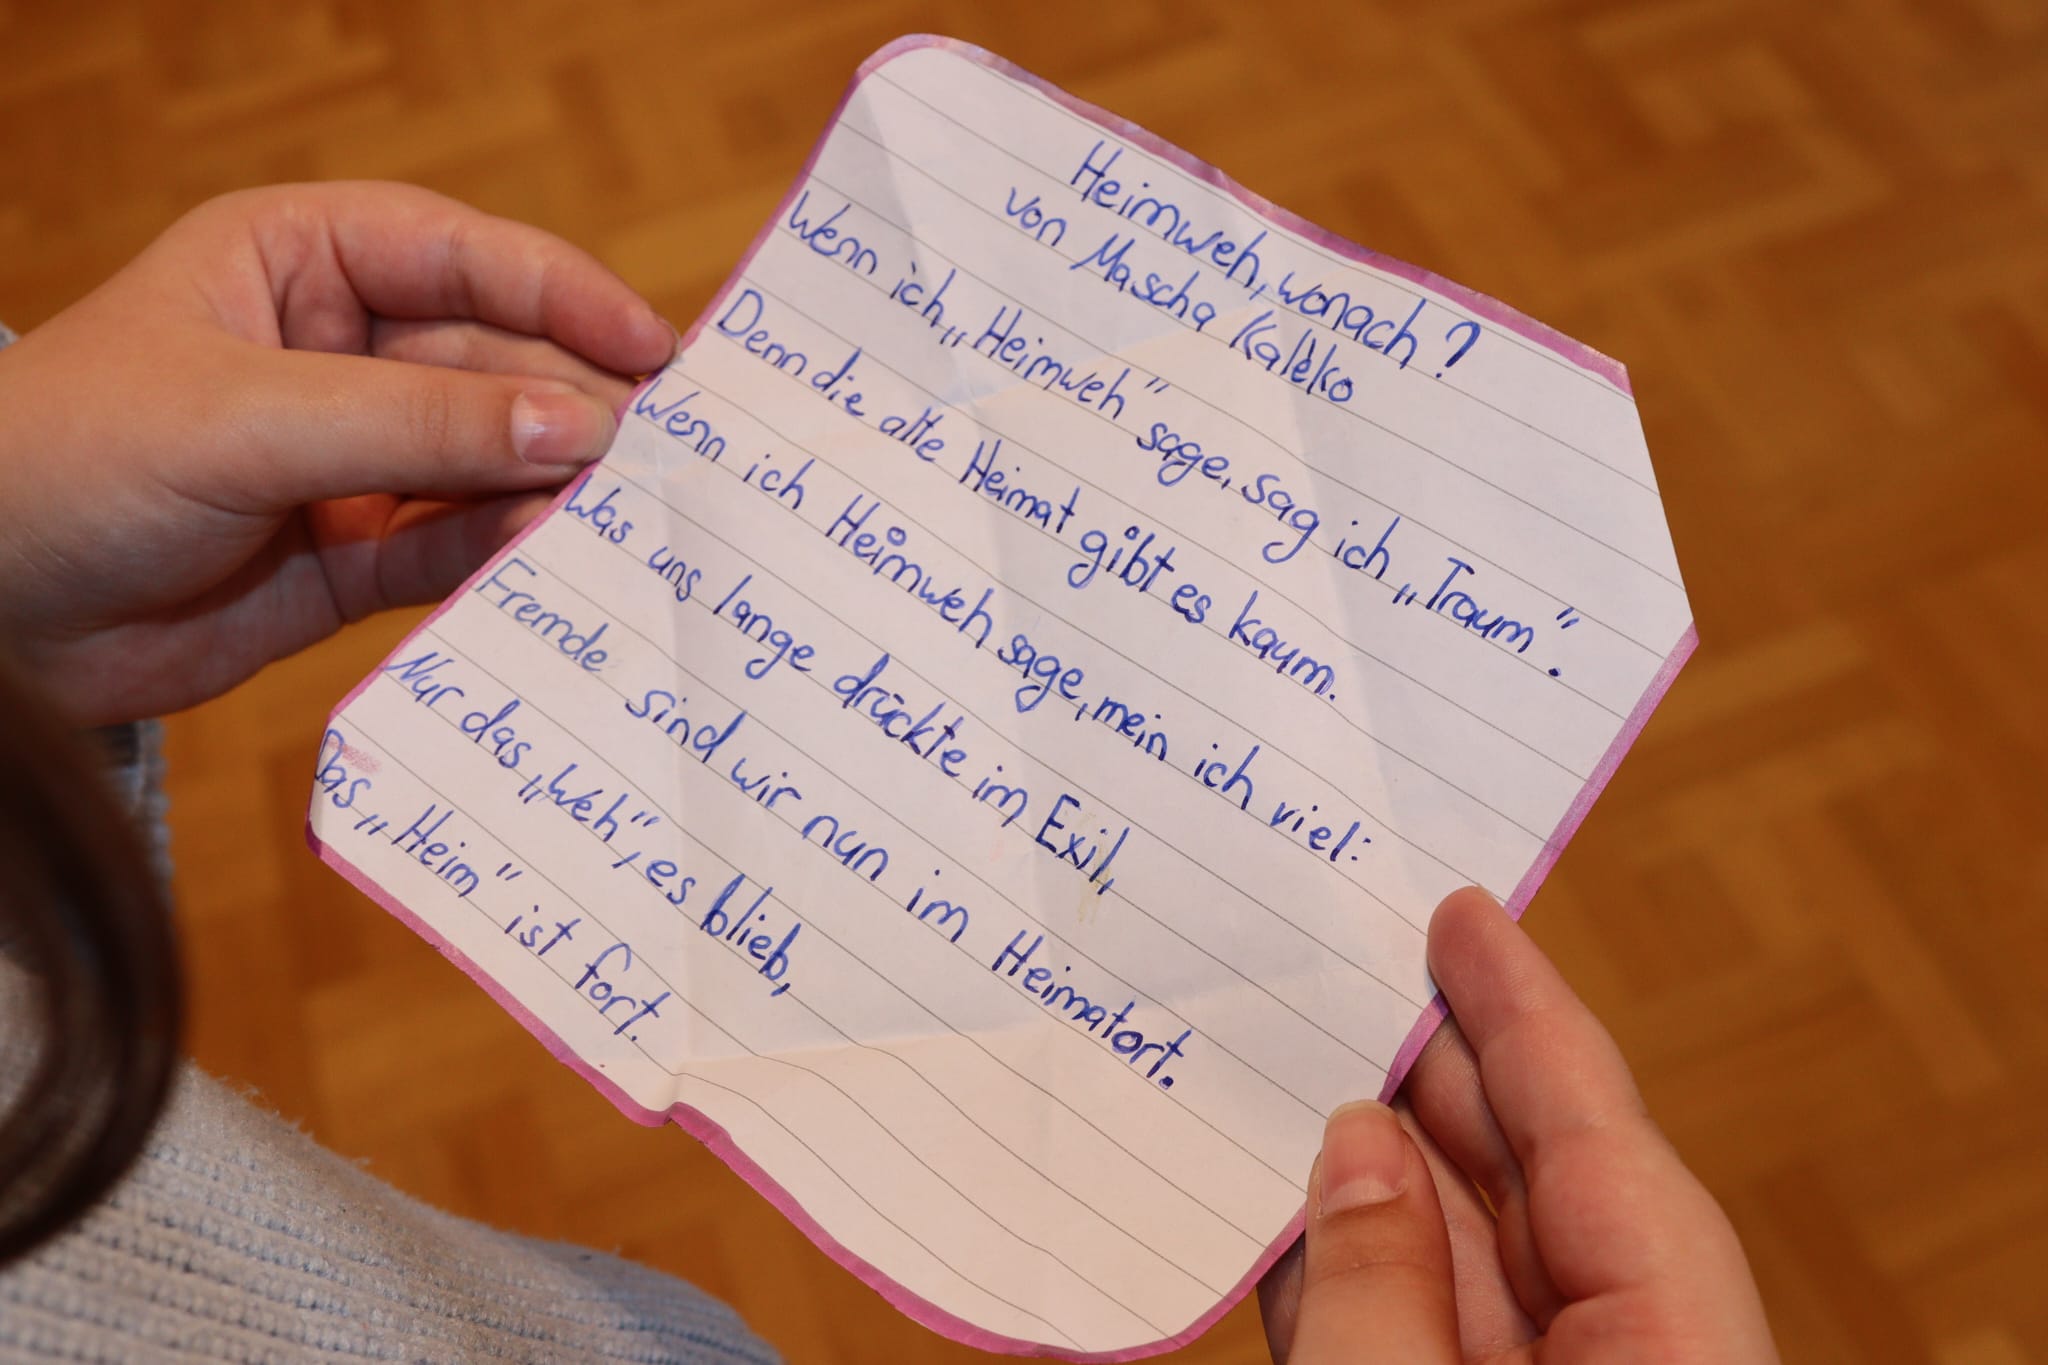 Heimweh, wonach?
von Mascha Kalèko
Wenn ich „Heimweh" sage, sag ich „Traum".
Denn die alte Heimat gibt es kaum.
Wenn ich Heimweh sage, mein ich viel:
Was uns lange drückte im Exil,
Fremde sind wir nun im Heimatort.
Nur das „Weh", es blieb,
Das „Heim" ist fort.